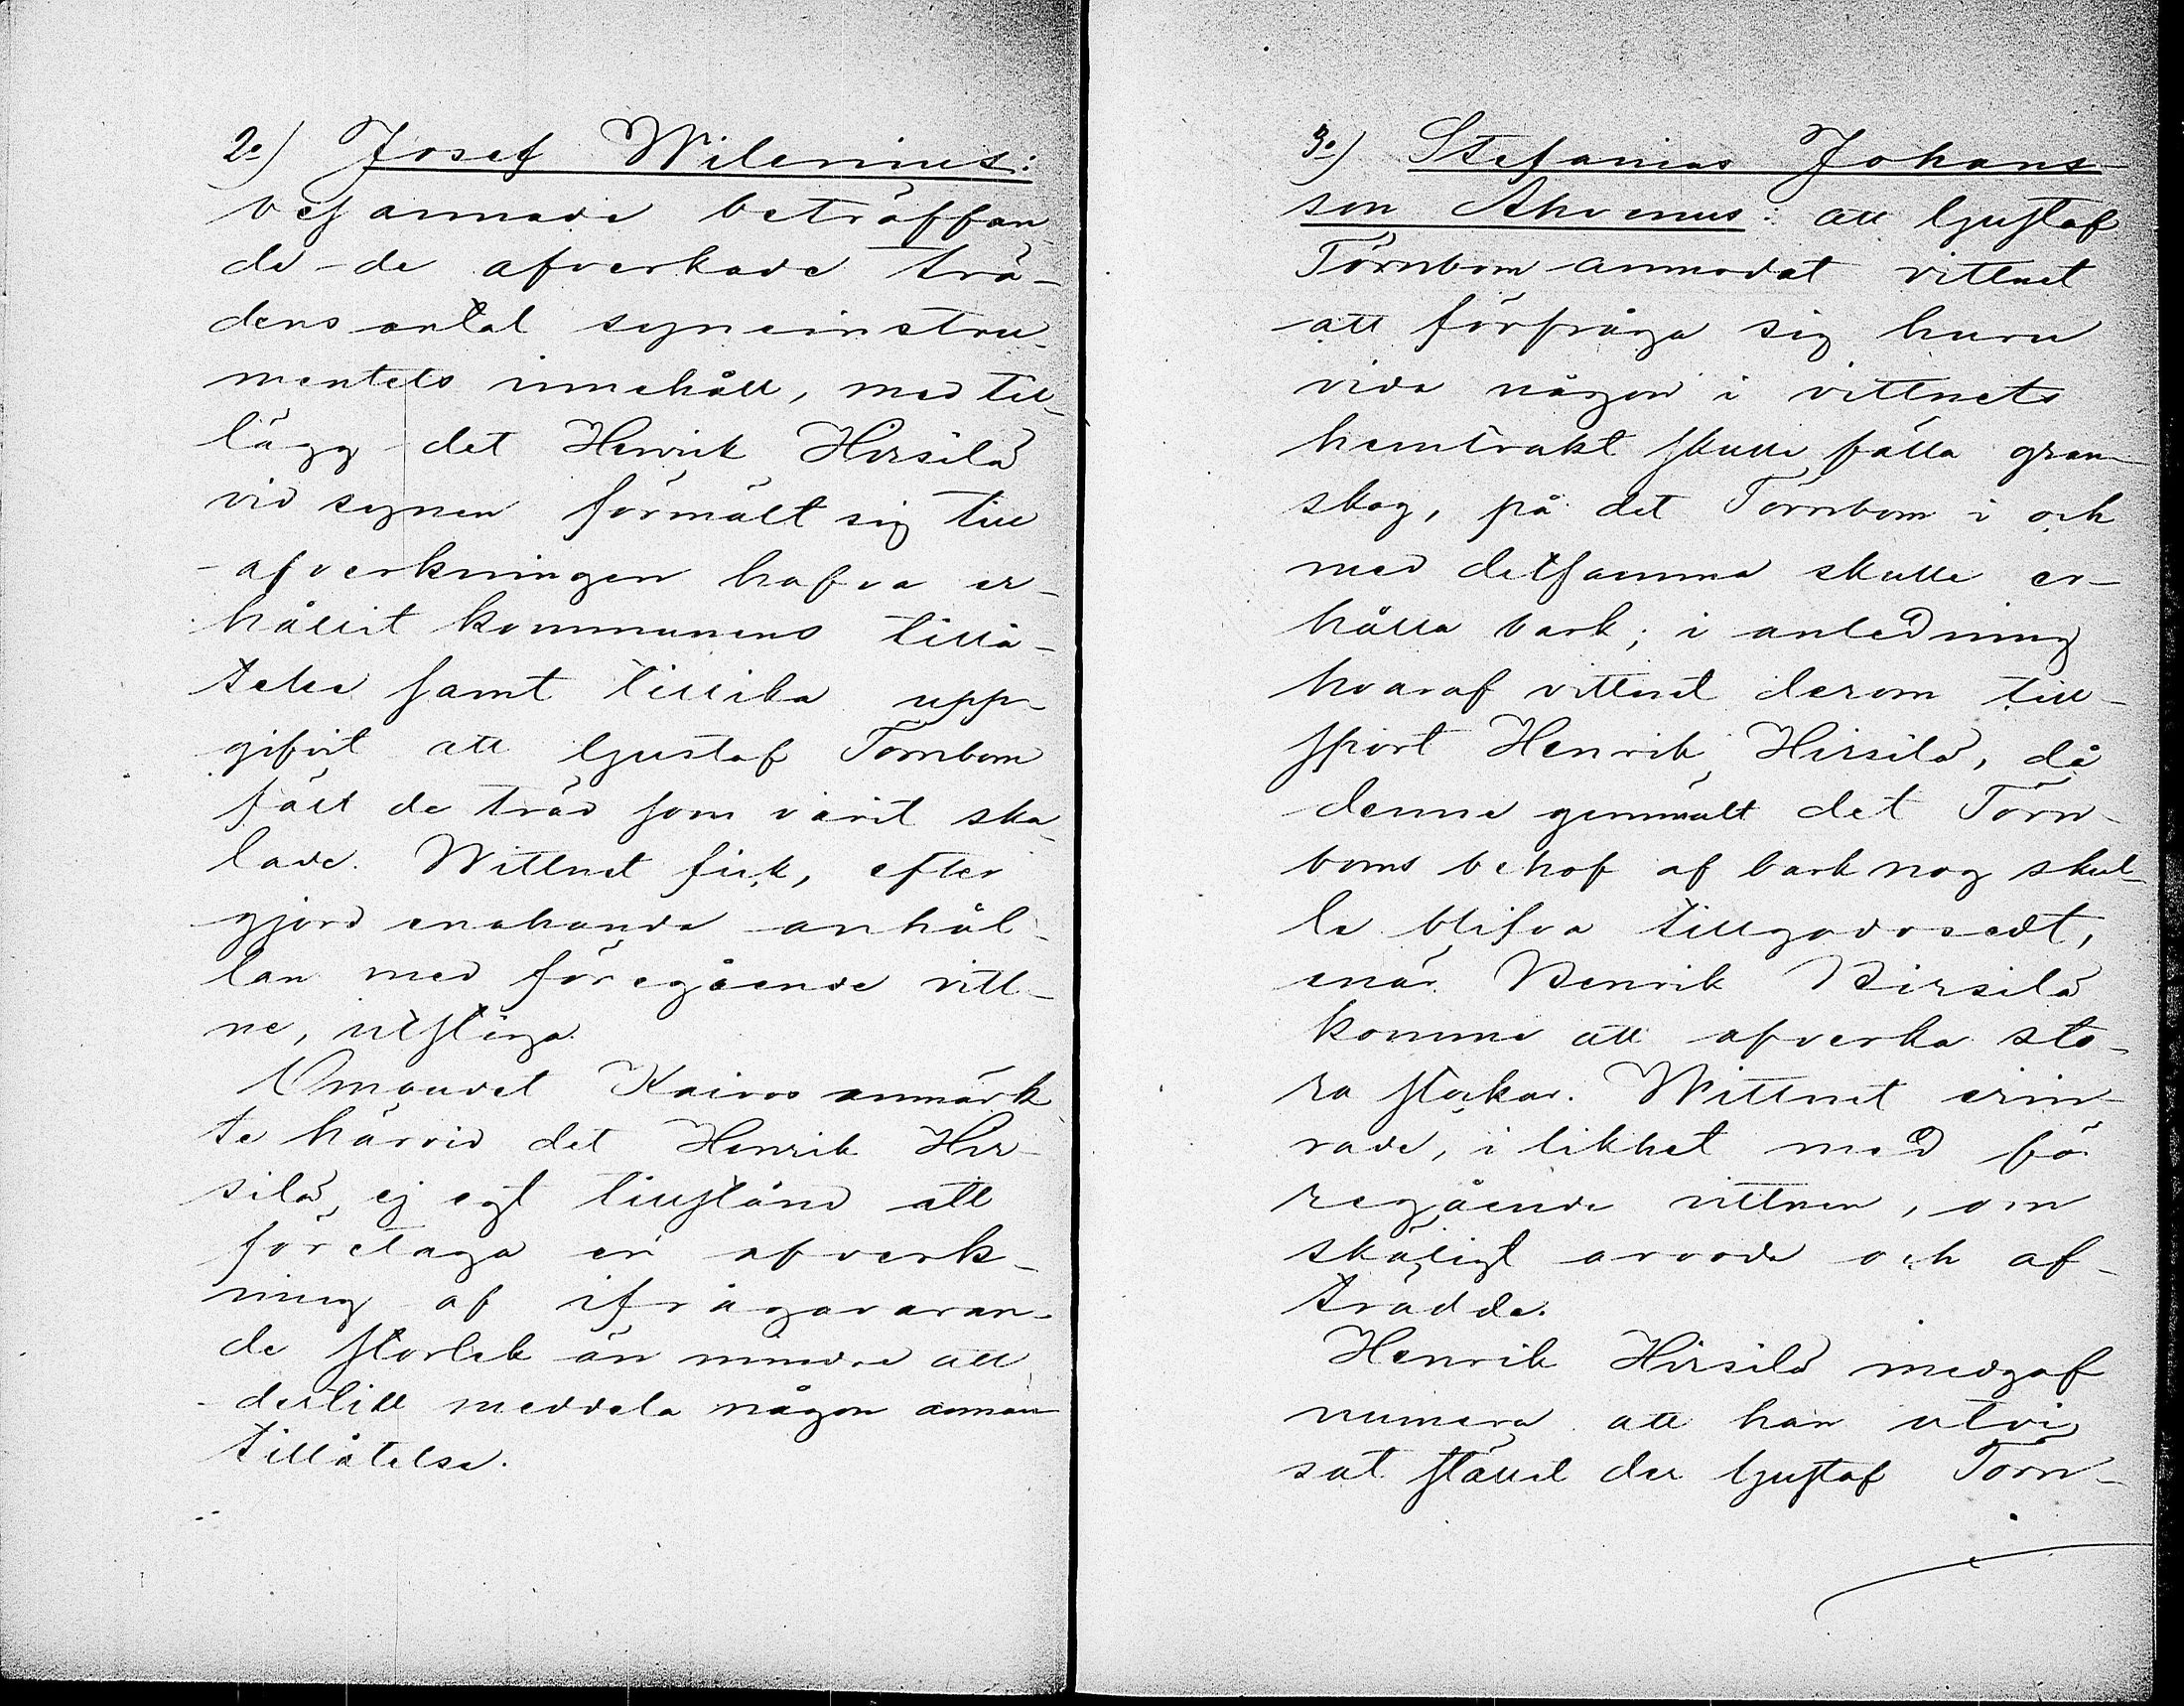 2o) Josef Wilenius:
besannade beträffan
de de afverkade trä-
dens antal syneinstru-
mentets innehåll, med till-
lägg det Henrik Hirsilä
vid synen förmält sig till
afverkningen hafva er-
hållit kommunens tillå-
telse samt tillika upp-
gifvit att Gustaf Törnbom
fält de träd som varit ska-
lade. Wittnet fick, efter
gjord enahanda anhål-
lan med föregående vitt-
ne, utstiga.
Ombudet Kairos anmärk
te härvid det Henrik Hir-
silä, ej egt tillstånd att
företaga en afverk-
ning af ifrågavaran-
de storlek än mindre att
dertill meddela någon annan
tillåtelse.
3o) Stefanus Johans-
son Ahvenus: att Gustaf
Törnbom anmodat vittnet
att förfråga sig huru
vida någon i vittnets
hemtrakt skulle fälla gran-
skog, på det Törnbom i och
med detsamma skulle er-
hålla bark; i anledning
hvaraf vittnet derom till-
sport Henrik Hirsilä, då
denne genmält det Törn-
boms behof af bark nog skul-
le blifva tillgodosedt,
enär Henrik Hirsilä
komme att afverka sto-
ra stockar. Wittnet erin-
rade, i likhet med fö-
regående vittnen, om
skäligt arvode och af-
trädde.
Henrik Hirsilä medgaf
numera att han utvi
sat stället der Gustaf Törn-